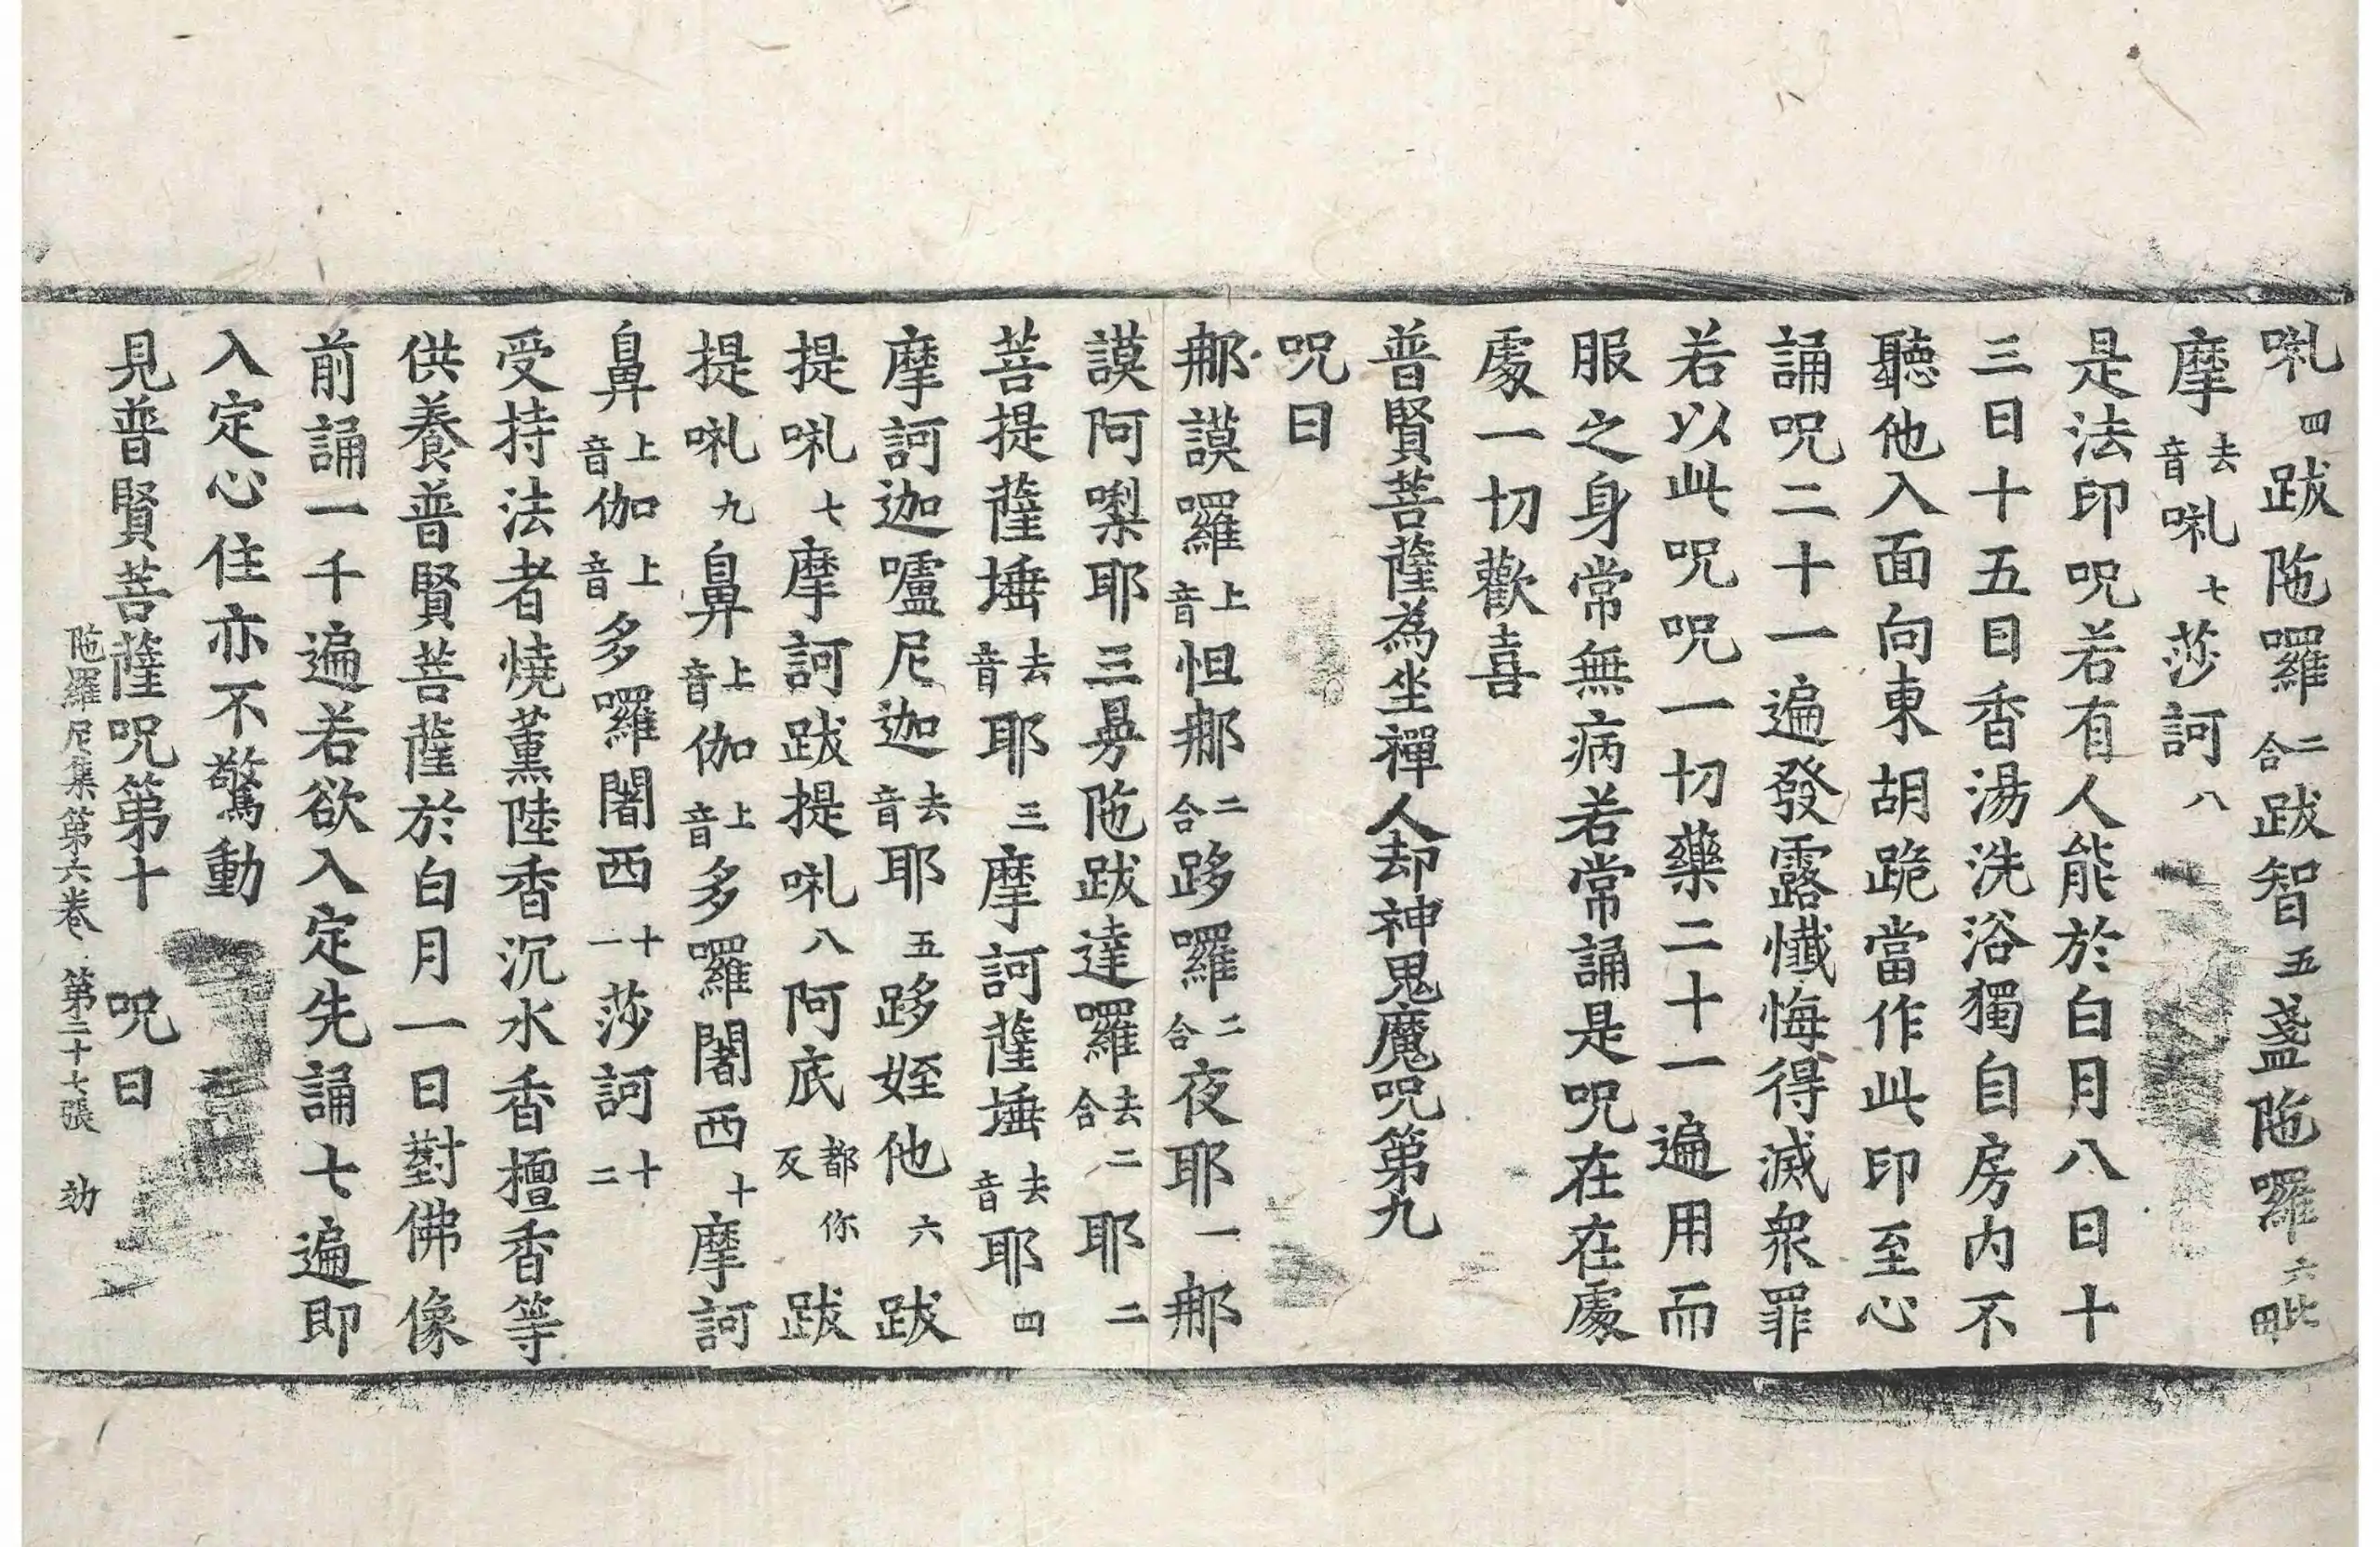 㖿四跋陁囉二合跋智五盞陁囉六毗
摩去音唎七莎訶八
是法印呪若有人能於白月八日十
三日十五日香湯洗浴獨自房内不
聽他入面向東胡跪當作此印至心
誦呪二十一遍發露懺悔得滅衆罪
若以此呪呪一切藥二十一遍用而
服之身常無病若常誦是呪在在處
處一切歡喜
普賢菩薩為坐禪人却神鬼魔呪第九
呪曰
那謨囉上音怛那二合跢囉二合夜耶一那
謨阿㗚耶三曼陁跋達囉去二合耶二
菩提薩埵去音耶三摩訶薩埵去音耶四
摩訶迦嚧尼迦去音耶五跢姪他六跋
提㘑七摩訶跋提㘑八阿底都你反跋
提㘑九鼻上音伽上音多囉闍西十摩訶
鼻上音伽上音多囉闍西十一莎訶十二
受持法者燒薰陸香沉水香檀香等
供養普賢菩薩於白月一日對佛像
前誦一千遍若欲入定先誦七遍即
入定心住亦不驚動
見普賢菩薩呪第十 呪曰
陁羅尼集第六卷 第二十七張 効